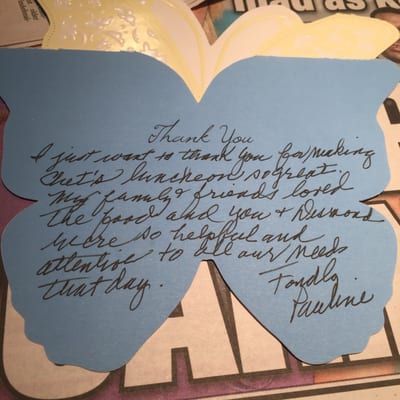 mad as
Thank You
I just want to thank you for making
Chet's luncheon so great
My family & friends loved
the food and you & Desmond
were so helpful and
attentive to all our needs
that day.
Fondly,
Pauline